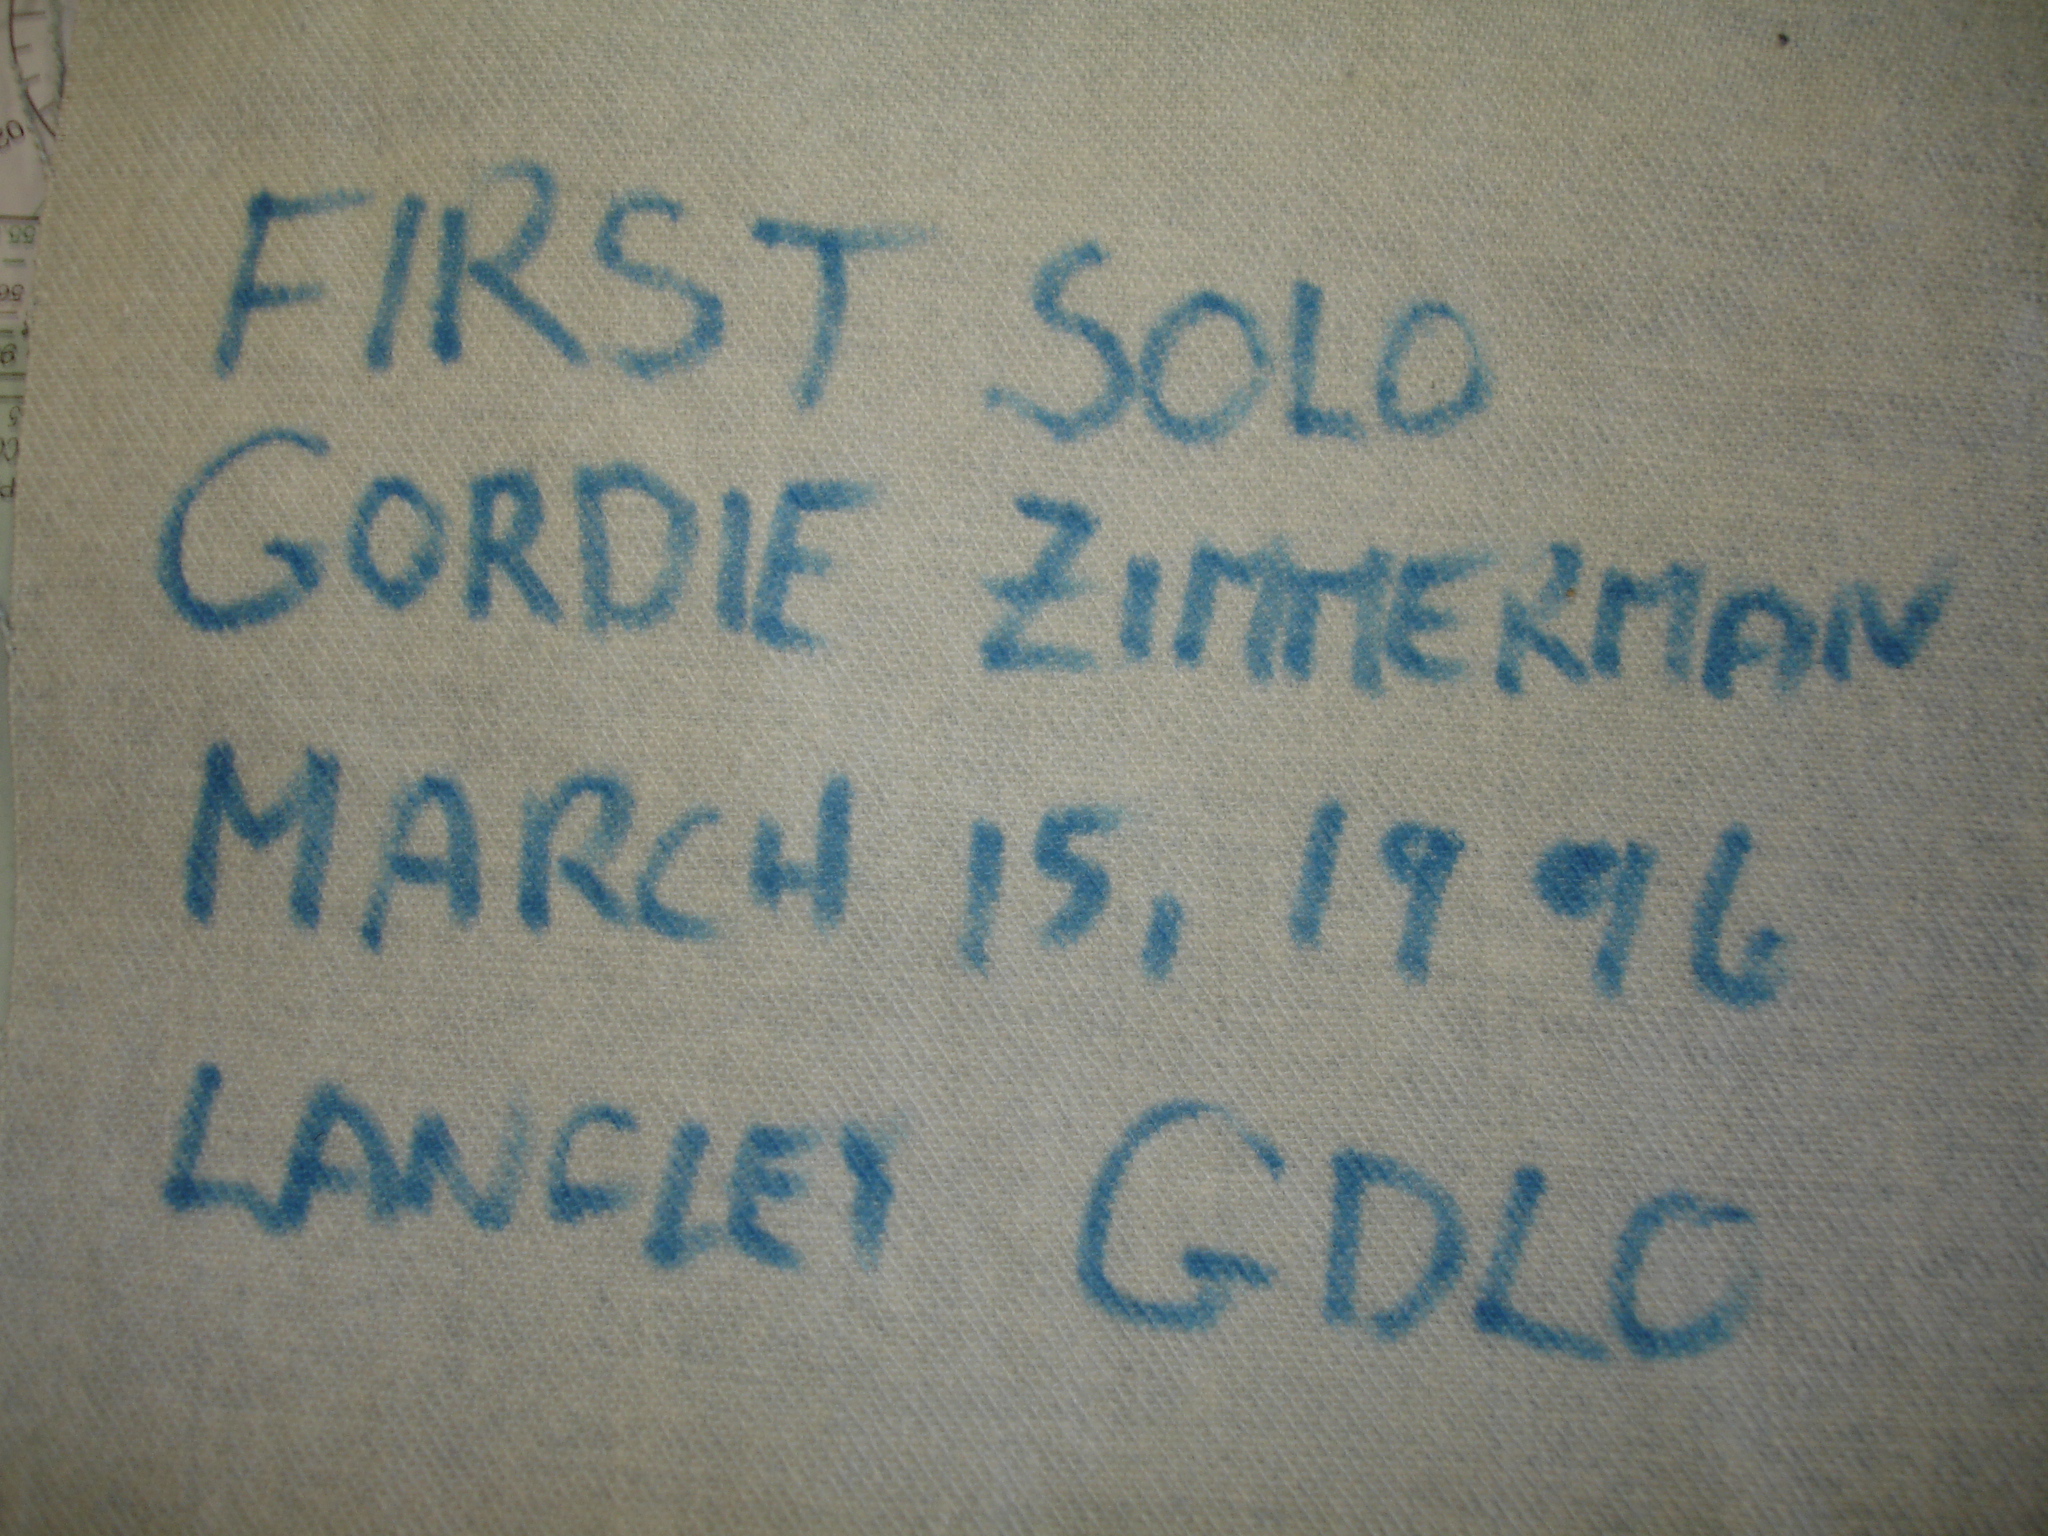 FIRST SOLO
GORDIE ZIMMERMAN
MARCH 15, 1996
LANGLEY GDLO